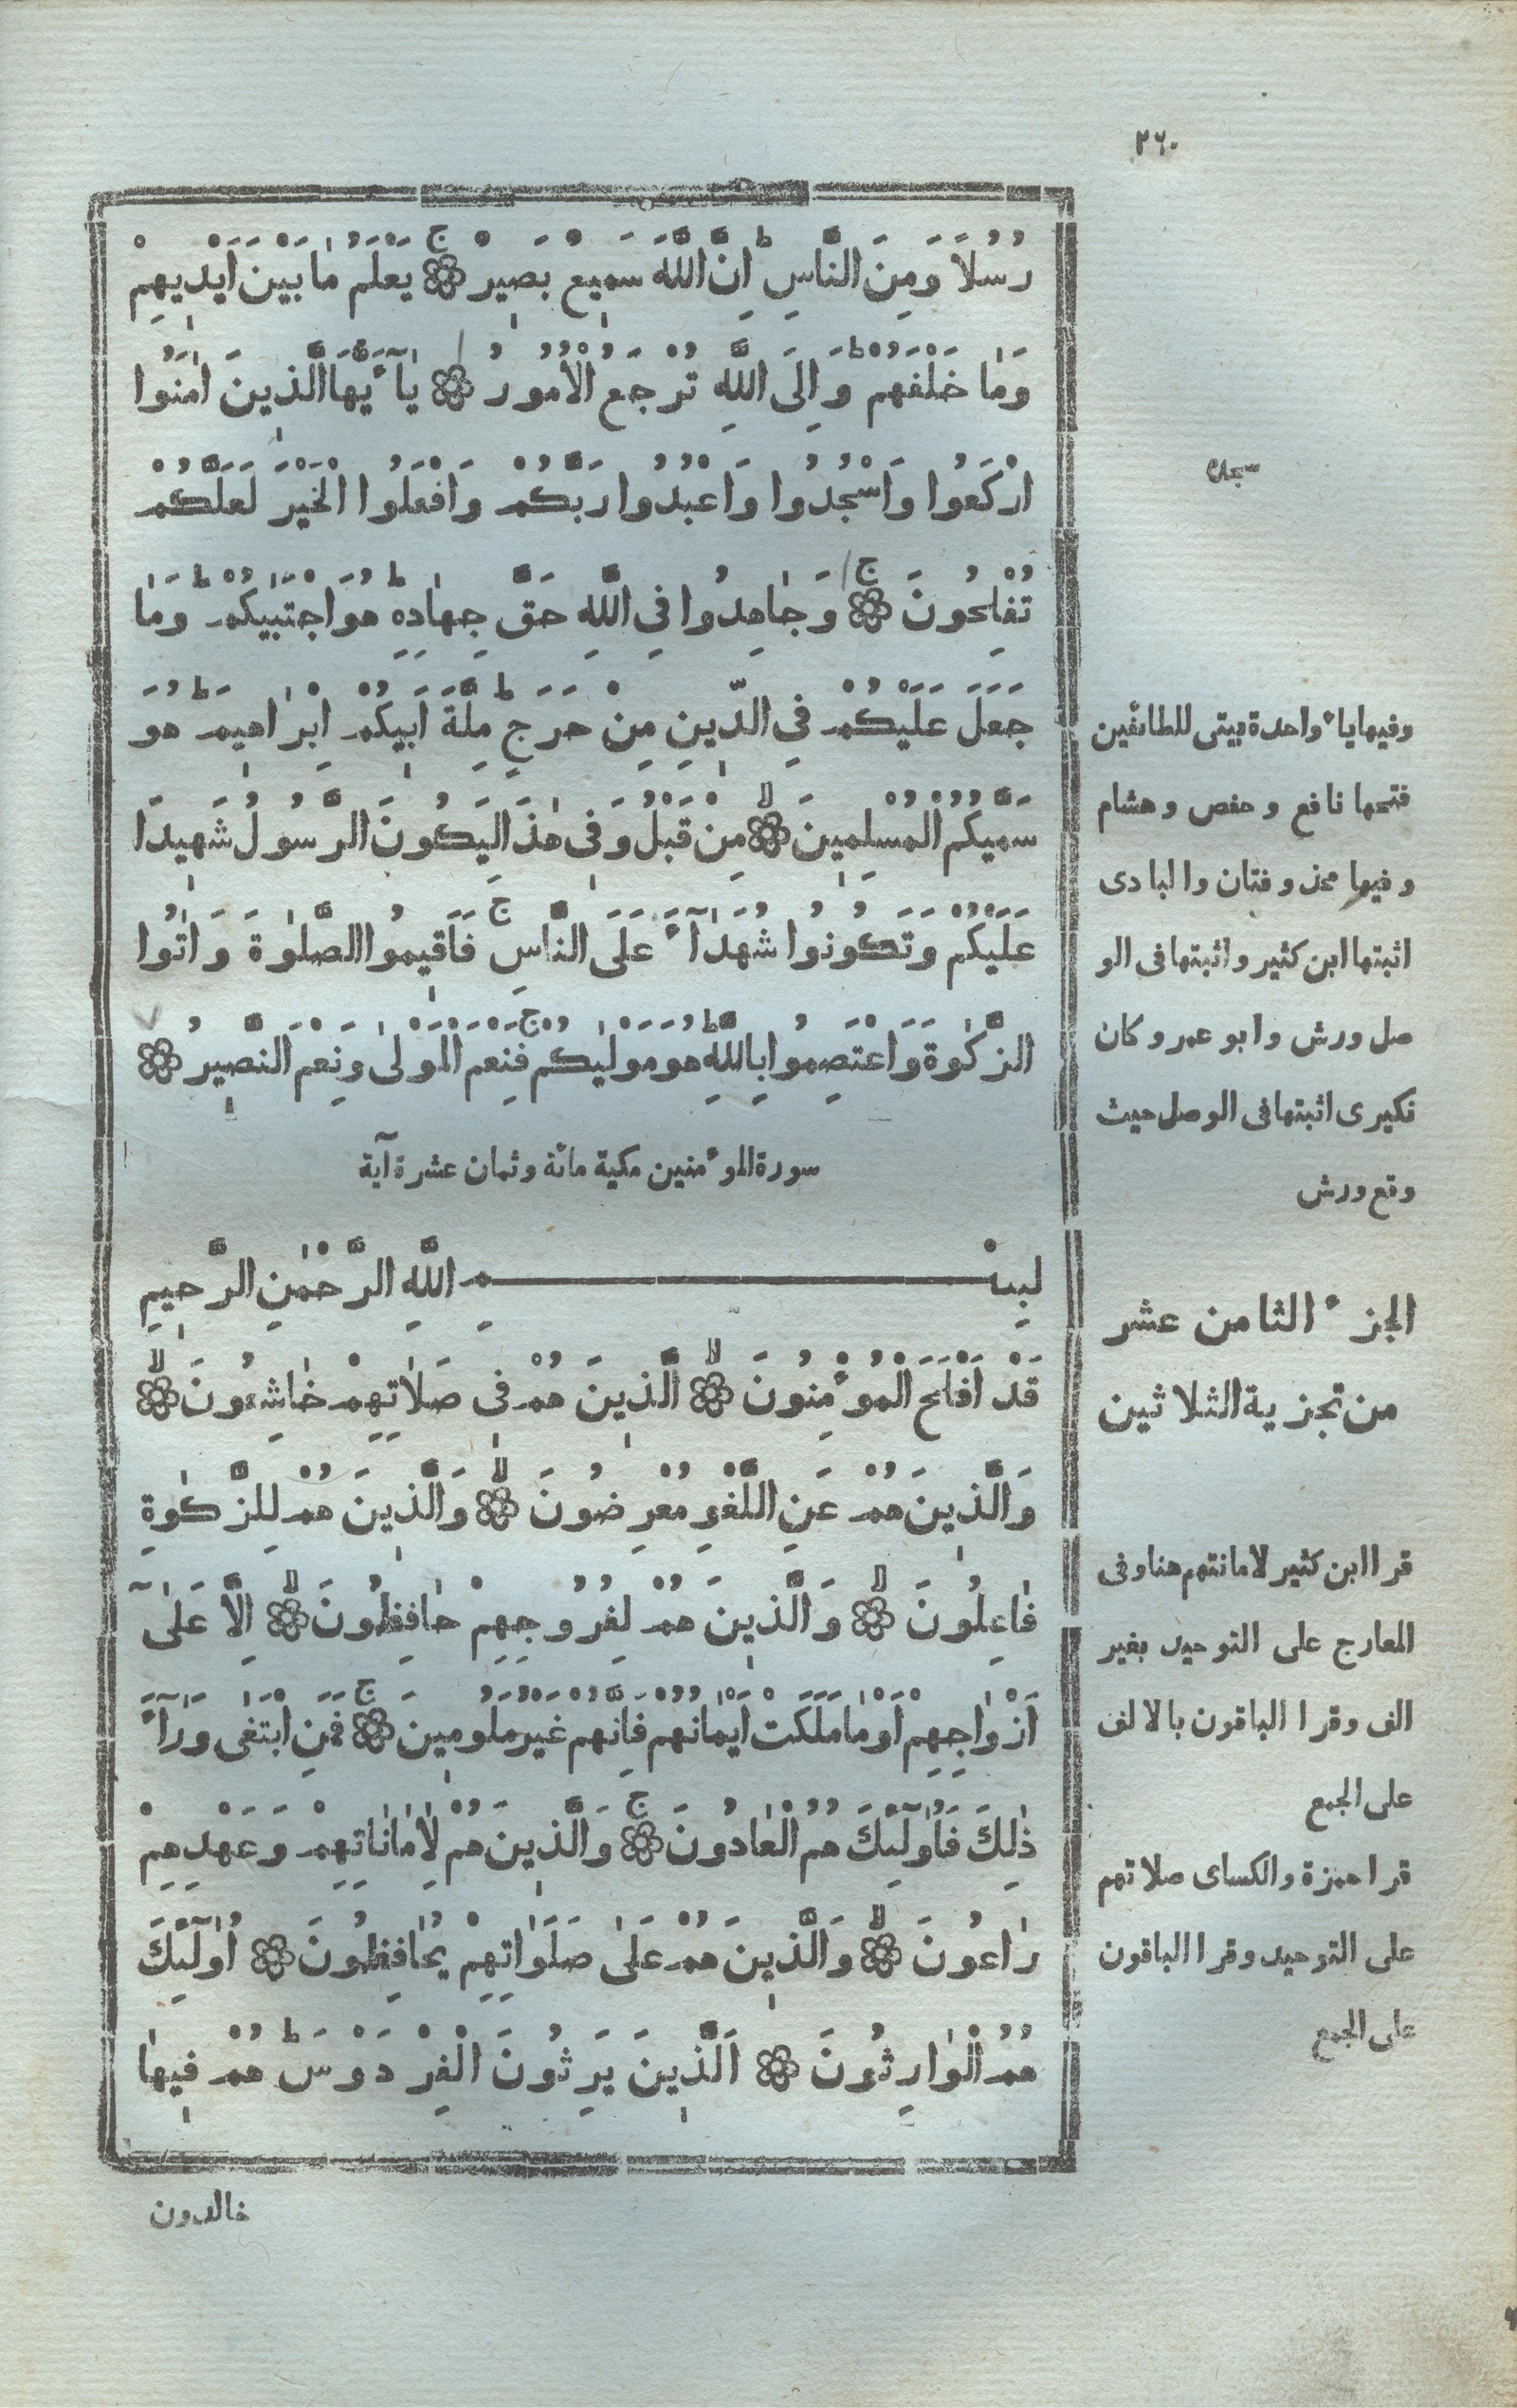 ٢٦٠
رُسُلًا وَمِنَ النَّاسِ ؕ اِنَّ اللّٰهَ سَمٖيعٌ بَصٖيرٌ ۚ يَعْلَمُ مٰا بَيْنَ اَيْدٖيهِمْ
وَمٰا خَلْفَهُمْ ؕ وَاِلَى اللّٰهِ تُرْجَعُ الْاُمُورُ يٰآءَيُّهَا الَّذٖينَ اٰمَنُوا
ارْكَعُوا وَاسْجُدُوا وَاعْبُدُوا رَبَّكُمْ وَافْعَلُوا الْخَيْرَ لَعَلَّكُمْ
سجدة
تُفْلِحُونَ ۚ وَجٰاهِدُوا فِى اللّٰهِ حَقَّ جِهٰادِهِ ؕ هُوَ اجْتَبٰيكُمْ ؕ وَمٰا
جَعَلَ عَلَيْكُمْ فِى الدّٖينِ مِنْ حَرَجٍ ؕ مِلَّةَ اَبٖيكُمْ اِبْرٰاهٖيمَ ؕ هُوَ
سَمّٰيكُمُ الْمُسْلِمٖينَ ۙ مِنْ قَبْلُ وَفٖى هٰذَا لِيَكُونَ الرَّسُولُ شَهٖيدًا
عَلَيْكُمْ وَتَكُونُوا شُهَدٰآءَ عَلَى النَّاسِ ۚ فَاَقٖيمُوا الصَّلٰوةَ وَاٰتُوا
الزَّكٰوةَ وَاعْتَصِمُوا بِاللّٰهِ ؕ هُوَ مَوْلٰيكُمْ ۚ فَنِعْمَ الْمَوْلٰى وَنِعْمَ النَّصٖيرُ
سورة الموءمنين مكية مائة وثمان عشرة آية
بِسْمِ اللّٰهِ الرَّحْمٰنِ الرَّحٖيمِ
قَدْ اَفْلَحَ الْمُوءْمِنُونَ ۙ الَّذٖينَ هُمْ فٖى صَلَاتِهِمْ خٰاشِعُونَ ۙ
وَالَّذٖينَ هُمْ عَنِ اللَّغْوِ مُعْرِضُونَ ۙ وَالَّذٖينَ هُمْ لِلزَّكٰوةِ
فٰاعِلُونَ ۙ وَالَّذٖينَ هُمْ لِفُرُوجِهِمْ حٰافِظُونَ ۙ اِلَّا عَلٰىٓ
اَزْوٰاجِهِمْ اَوْ مٰا مَلَكَتْ اَيْمٰانُهُمْ فَاِنَّهُمْ غَيْرُ مَلُومٖينَ ۚ فَمَنِ ابْتَغٰى وَرٰآءَ
ذٰلِكَ فَاُولٰٓئِكَ هُمُ الْعٰادُونَ ۚ وَالَّذٖينَ هُمْ لِاَمٰانٰاتِهِمْ وَعَهْدِهِمْ
رٰاعُونَ ۙ وَالَّذٖينَ هُمْ عَلٰى صَلَوٰاتِهِمْ يُحٰافِظُونَ اُولٰٓئِكَ
هُمُ الْوٰارِثُونَ اَلَّذٖينَ يَرِثُونَ الْفِرْدَوْسَ ؕ هُمْ فٖيهٰا
خالدون
وفيها ياء واحدة بيتى للطائفين
فتحها نافع وحفص وهشام
وفيها محذوفتان والبادى
اثبتها ابن كثير واثبتها فى الو
صل ورش وابو عمرو كان
نكيرى اثبتها فى الوصل حيث
وقع ورش
الجزء الثامن عشر
من تجزية الثلاثين
قرا ابن كثير لامانتهم هنا وفى
المعارج على التوحيد بغير
الف وقرا الباقون بالالف
على الجمع
قرا حمزة والكساى صلاتهم
على التوحيد وقرا الباقون
على الجمع